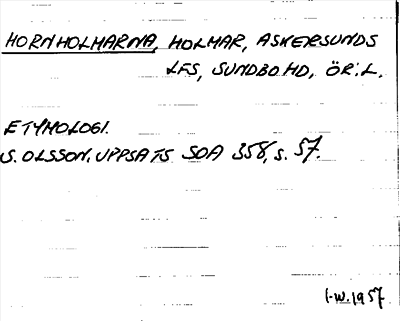 HORNHOLMARNA, HOLMAR, ASKERSUNDS
LFS, SUNDBO HD, ÖR. L.
ETYMOLOGI.
S. OLSSON. UPPSATS SOA 358, s. 57.
I-W. 1957